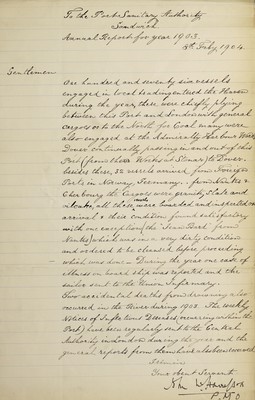 To the Port Sanitary Authority
Sandwich
Annual Report for year 1903.
Feby, 1904.
Gentlemen
One hundred and seventy six vessels
engaged in local trading entered the Haven
during the year, these were chiefly plying
between this Port and London with general
cargoes or to the North for Coal, many were
also engaged at the Admiralty Harbour Works
Dover continually passing in and out of this
Port (from their Works at Stonar) to Dover.
besides these, 32 vessels arrived from Foreign
Ports in Norway, Germany, from Nantes &
Cherbourg the Cargoes were granite, slate and
all these were boarded and inspected on
arrival & their condition found satisfactory
with one exception the from
Nantes) which was in a very dirty condition
and ordered to be cleaned before proceeding
which was done – During the year one case of
illness on board ship was reported and the
sailor sent to the Union Infirmary.
Two accidental deaths from drowning also
occurred in the River during 1903. The weekly
Notices of Infectious Diseases, occurring within the
Port) have been regularly sent to the Central
Authority in London during the year and the
general reports from them have also been received
I remain
Your obedt Servant